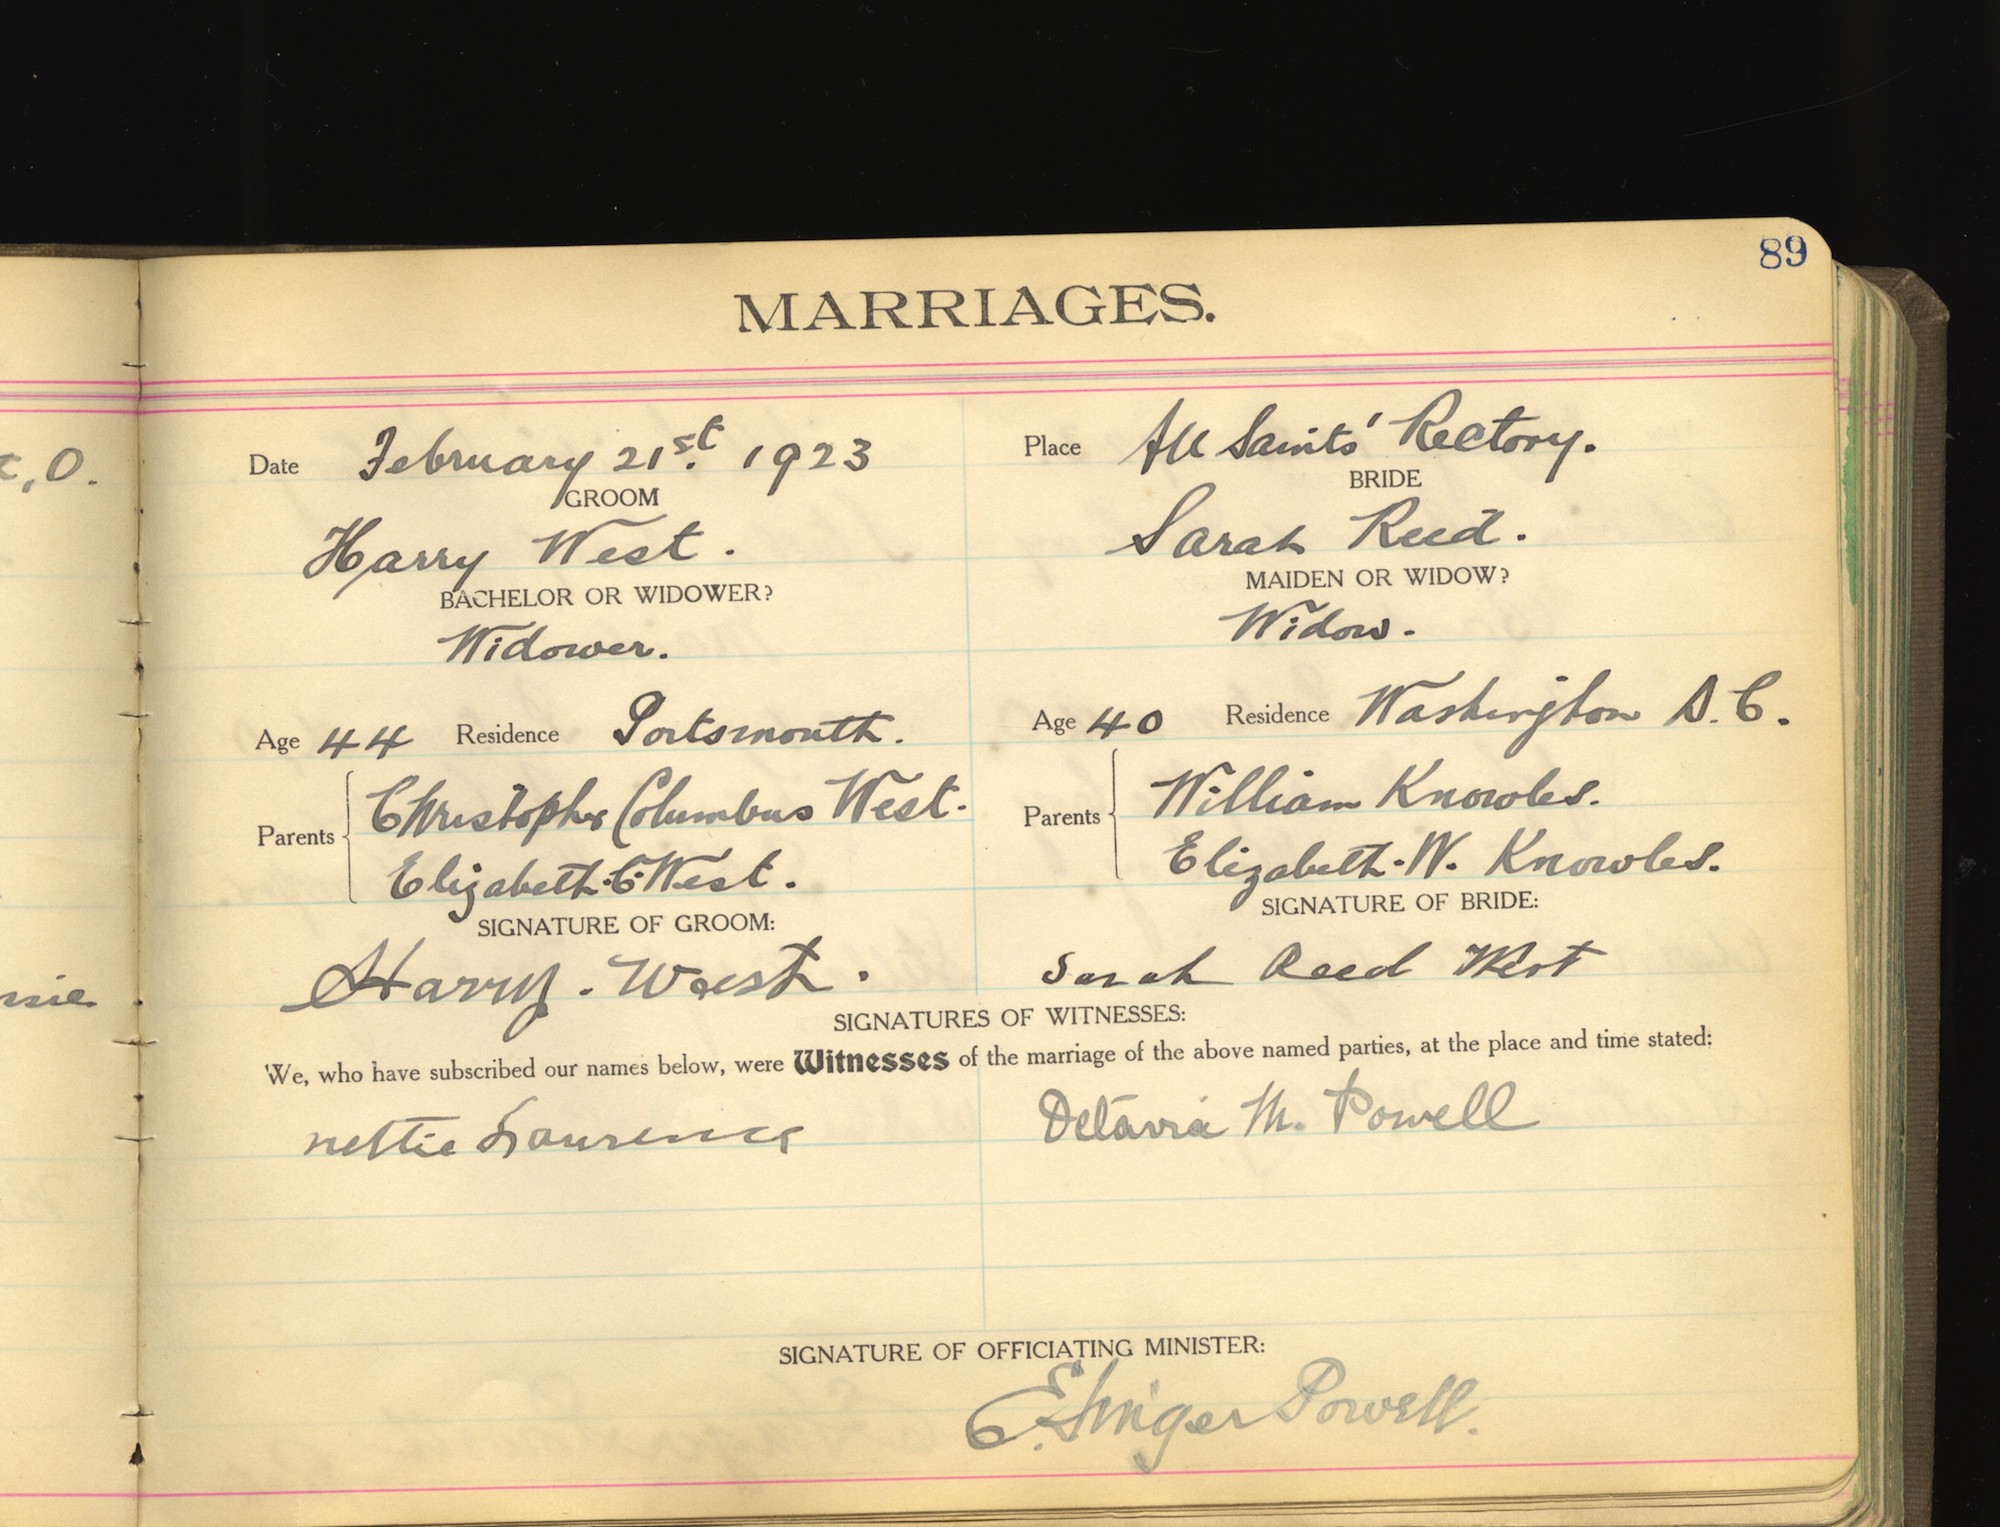 89
MARRIAGES.
Date February 21st. 1923 Place All Saints' Rectory.
GROOM BRIDE
Harry West. Sarah Reed.
BACHELOR OR WIDOWER? MAIDEN OR WIDOW?
Widower. Widow.
Age 44 Residence Portsmouth. Age 40 Residence Washington D.C.
Parents Christopher Columbus West. Parents William Knowles.
Elizabeth.C.West. Elizabeth.W. Knowles.
SIGNATURE OF GROOM: SIGNATURE OF BRIDE:
Harry. West. Sarah Reed West
SIGNATURES OF WITNESSES:
We, who have subscribed our names below, were Witnesses of the marriage of the above named parties, at the place and time stated:
nettie Laurence M. Powell
SIGNATURE OF OFFICIATING MINISTER:
E. Singer Powell.